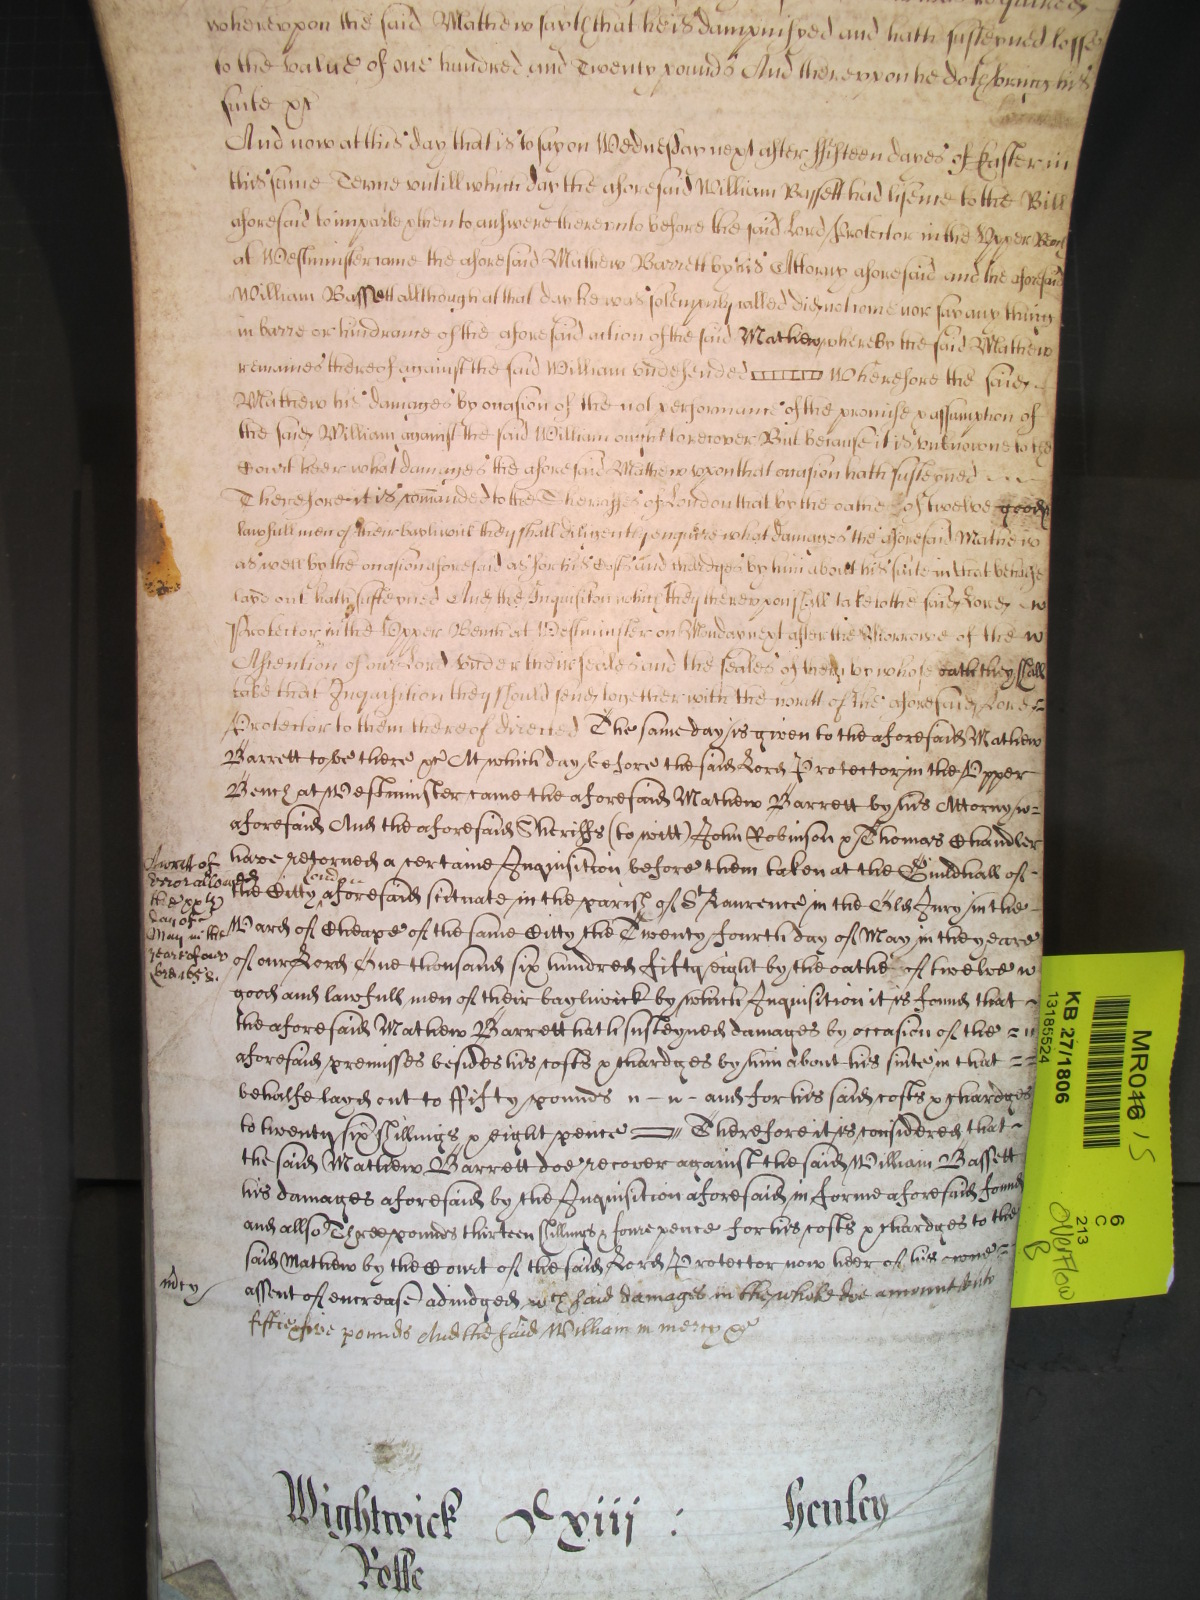 whereupon the said Mathew sayth that he is dampnifyed and hath susteyned losse
to the value of one hundred and Twenty pounds And thereupon he doth bring his
suite &c
And now at this day that is to say on Wednesday next after ffifteen dayes of Easter in
this same Terme untill which day the aforesaid William Bassett had lisence to the Bill
aforesaid to imparle & then to answere thereunto before the said Lord Protector in the Upper Bench
at Westminster came the aforesaid Mathew Barrett by his Attorny aforesaid and the aforesaid
William Bassett allthough at that day he was solempnly called did not come nor say any thing
in barre or hindrance of the aforesaid action of the said Mathew whereby the said Mathew
remaines thereof against the said William undefended Wherefore the said
Mathew his damages by occasion of the not performance of the promise & assumption of
the said William against the said William ought to recover But because it is unknowne to the
Court heer what damages the aforesaid Mathew upon that occasion hath susteyned
Therefore it is comanded to the Sherriffes of London that by the oathe of twelve good &
lawfull men of their baylwick they shall diligently enquire what damages the aforesaid Mathew
as well by the occasion aforesaid as for his Costs and chardges by him about his suite in that behalfe
layd out hath susteyned And the Inquisition which they thereupon shall take to the said Lord
Protector in the Upper Bench at Westminster on Monday next after the Morrowe of the
Ascention of our Lord under their seales and the seales of them by whose oath they shall
take that Inquisition they should send together with the writt of the aforesaid Lord
Protector to them thereof directed The same day is given to the aforesaid Mathew
Barrett to be there &c At which day before the said Lord Protector in the Upper
Bench at Westminster came the aforesaid Mathew Barrett by his Attorny
aforesaid And the aforesaid Sheriffs (to witt) John Robinson & Thomas Chandler
have retorned a certaine Inquisition before them taken at the Guildhall of
the Citty aforesaid situate in the parish of St Laurence in the Old Jury in the
Ward of Cheape of the same Citty the Twenty fourth day of May in the yeare
of our Lord One thousand six hundred fifty eight by the oathe of twelve
good and lawfull men of their baylwick by which Inquisition it is found that
the aforesaid Mathew Barrett hath susteyned damages by occasion of the
aforesaid premisses besides his costs & chardges by him about his suite in that
behalfe layd out to ffifty pounds and for his said costs & chardges
to twenty six shillings & eight pence Therefore it is considered that
the said Mathew Barrett doe recover against the said William Bassett
his damages aforesaid by the Inquisition aforesaid in forme aforesaid found
and allso Three pounds thirteen shillings & foure pence for his costs & chardges to the
said Mathew by the Court of the said Lord Protector now heer of his
assent of encrease adiudged wch said damages in the whole doe amount unto
fiftie five pounds And the said William in mercy &c
A writt of
error allowed
the
day of
May in the
yeare of our
Lord 1658.
mcy
Wightwick
xiii :
Henley
Rolle
MR046 / 5
KB 27/1806
13185524
6
C
213
Overflow
8